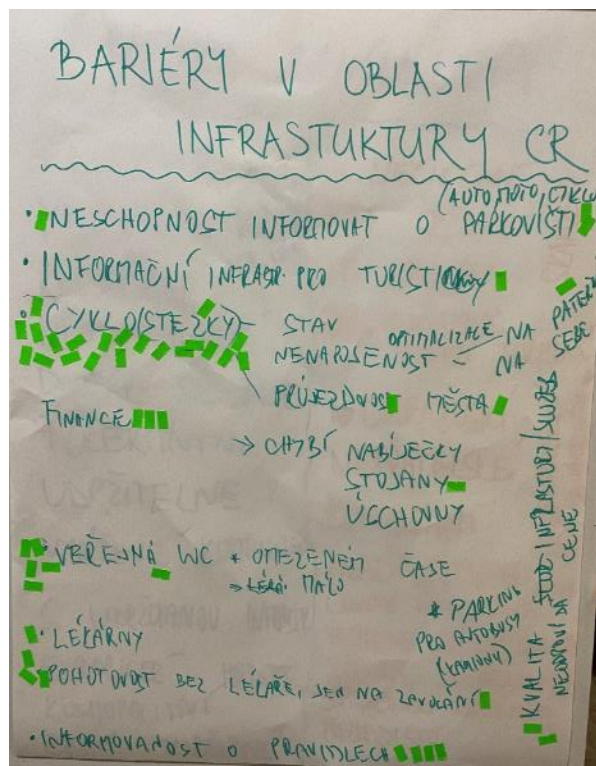 BARIÉRY V OBLASTI
INFRASTUKTURY CR
(AUTO, MOTO, CYKLO)
• NESCHOPNOST INFORMOVAT O PARKOVIŠTI
• INFORMAČNÍ INFRASTR. PRO TURISTIKY
• CYKLO(STEZKY) - STAV
NENAPOJENOST - OPTIMALIZACE NA PÁTEŘ
NA SEBE
PRŮJEZDNOST MĚSTA
FINANCE
→ CHYBÍ NABÍJEČKY
STOJANY
ÚSCHOVNY
• VEŘEJNÁ WC * OMEZENÉM ČASE
⇒ MÁLO
* PARKING
PRO AUTOBUSY
(KAMIONY)
• LÉKÁRNY
• POHOTOVOST BEZ LÉKAŘE, JEN NA ZAVOLÁNÍ
• INFORMOVANOST O PRAVIDLECH
• KVALITA INFRASTUR/SLUŽEB
NEODPOVÍDÁ CENĚ